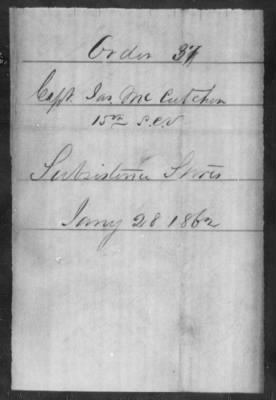 Order 37
Capt. Jas McCutchen
15th S.C.V
Subsistence Stores
Jany 28 1862